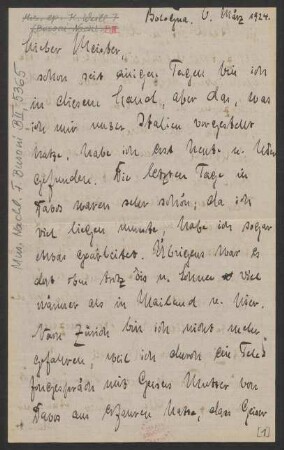 Bologna, 6. März 1924.
Lieber Meister,
schon seit einigen Tagen bin ich
in diesem Land, aber das, was
ich mir unter Italien vorgestellt
hatte, habe ich erst heute u. hier
gefunden. Die letzten Tage in
Davos waren sehr schön; da ich
viel liegen musste, habe ich sogar
etwas gearbeitet. Übrigens war es
dort oben trotz Eis u. Schnee viel
wärmer als in Mailand u. hier.
Nach Zürich bin ich nicht mehr
gefahren, weil ich durch ein Tele
fongespräch mit Geisers Mutter von
Davos aus erfahren hatte, dass Geiser
[1]
Mus. Nachl. F. Busoni B II, 5365